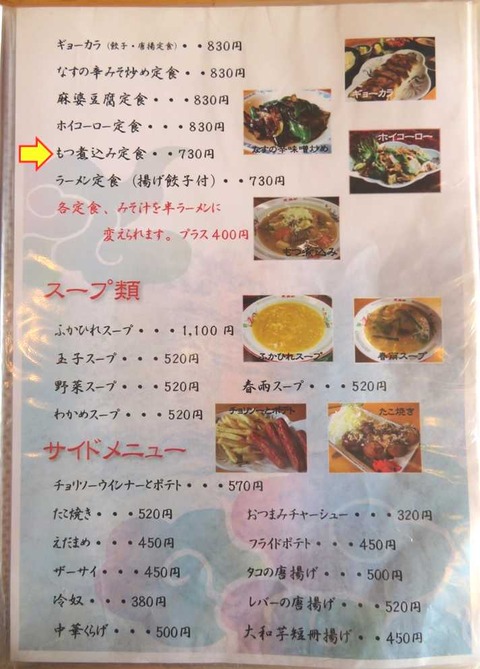 ギョーカラ（餃子・唐揚定食）・・830円
なすの辛みそ炒め定食・・830円
麻婆豆腐定食・・・830円
ホイコーロー定食・・・830円
もつ煮込み定食・・730円
ラーメン定食（揚げ餃子付）・・730円
各定食、みそ汁を半ラーメンに
変えられます。プラス400円
ギョーカラ
なすの辛味噌炒め
ホイコーロー
もつ煮込み
スープ類
ふかひれスープ・・・1,100円
玉子スープ・・・520円
野菜スープ・・・520円
春雨スープ・・・520円
わかめスープ・・・520円
ふかひれスープ
春雨スープ
チョリソーとポテト
たこ焼き
サイドメニュー
チョリソーウインナーとポテト・・・570円
たこ焼き・・・520円
おつまみチャーシュー・・・320円
えだまめ・・・450円
フライドポテト・・・450円
ザーサイ・・・450円
タコの唐揚げ・・・500円
冷奴・・・380円
レバーの唐揚げ・・・520円
中華くらげ・・・500円
大和芋短冊揚げ・・450円